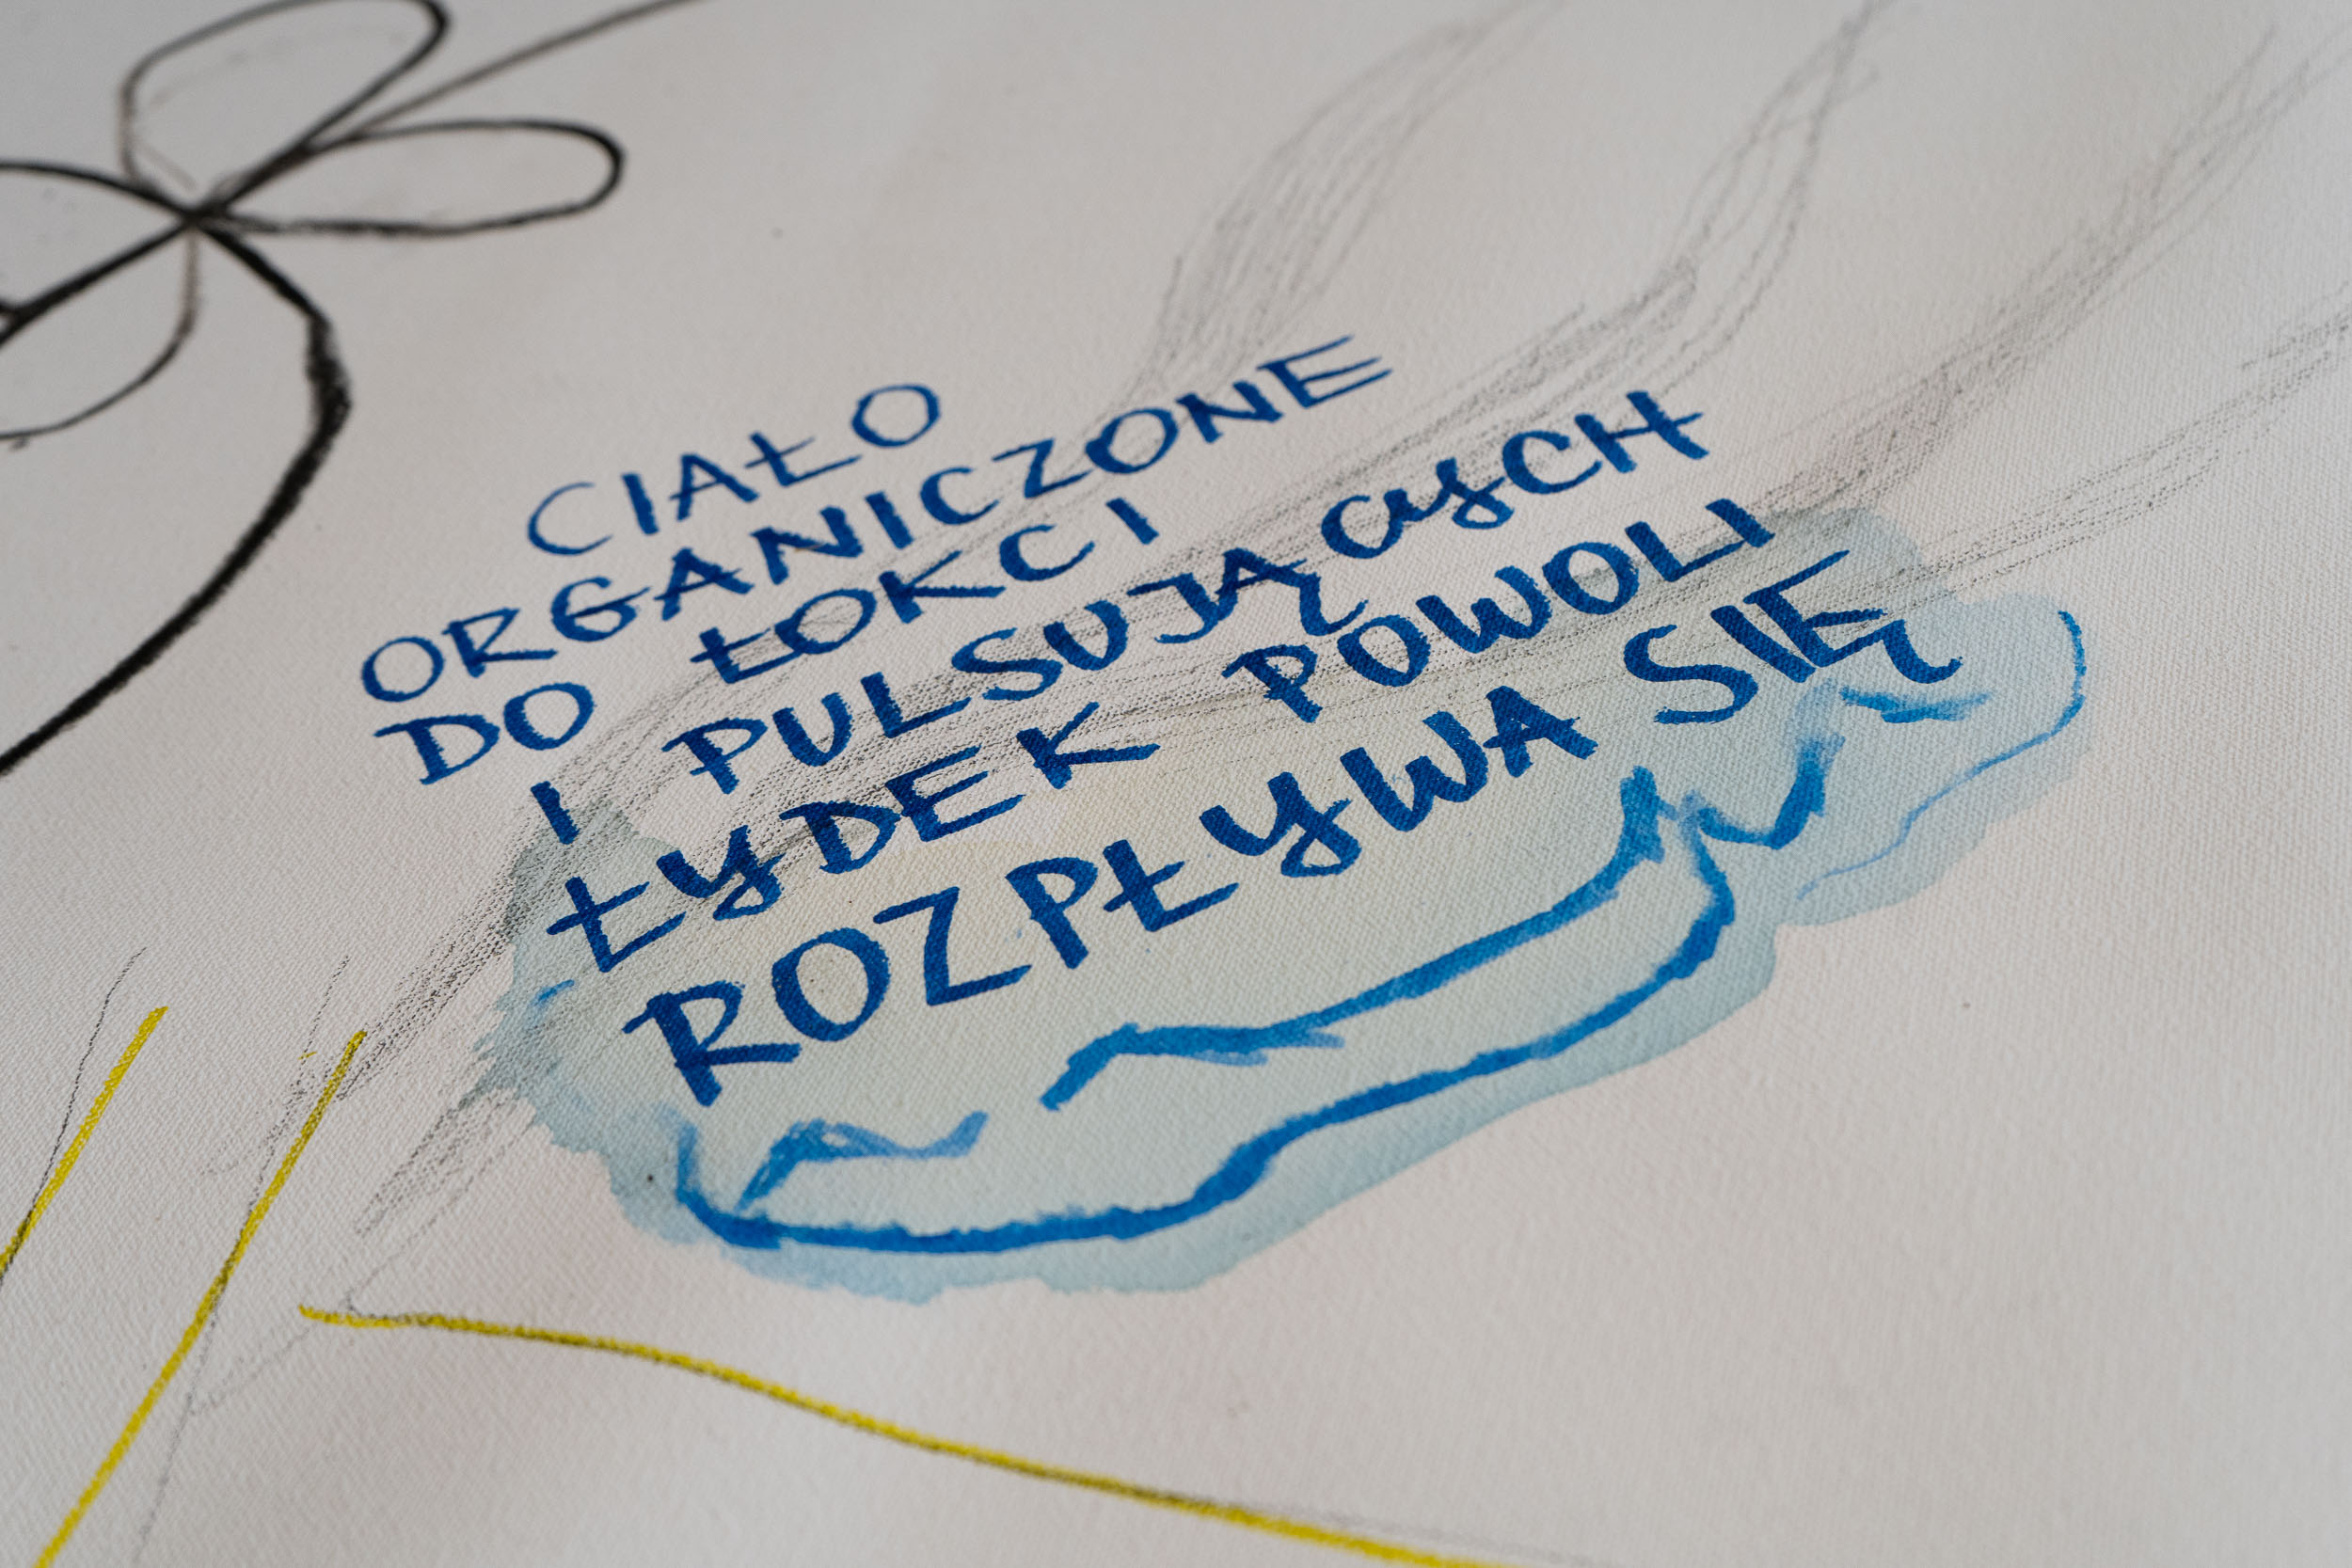 CIAŁO
ORGANICZONE
DO ŁOKCI
I PULSUJĄCYCH
ŁYDEK POWOLI
ROZPŁYWA SIĘ